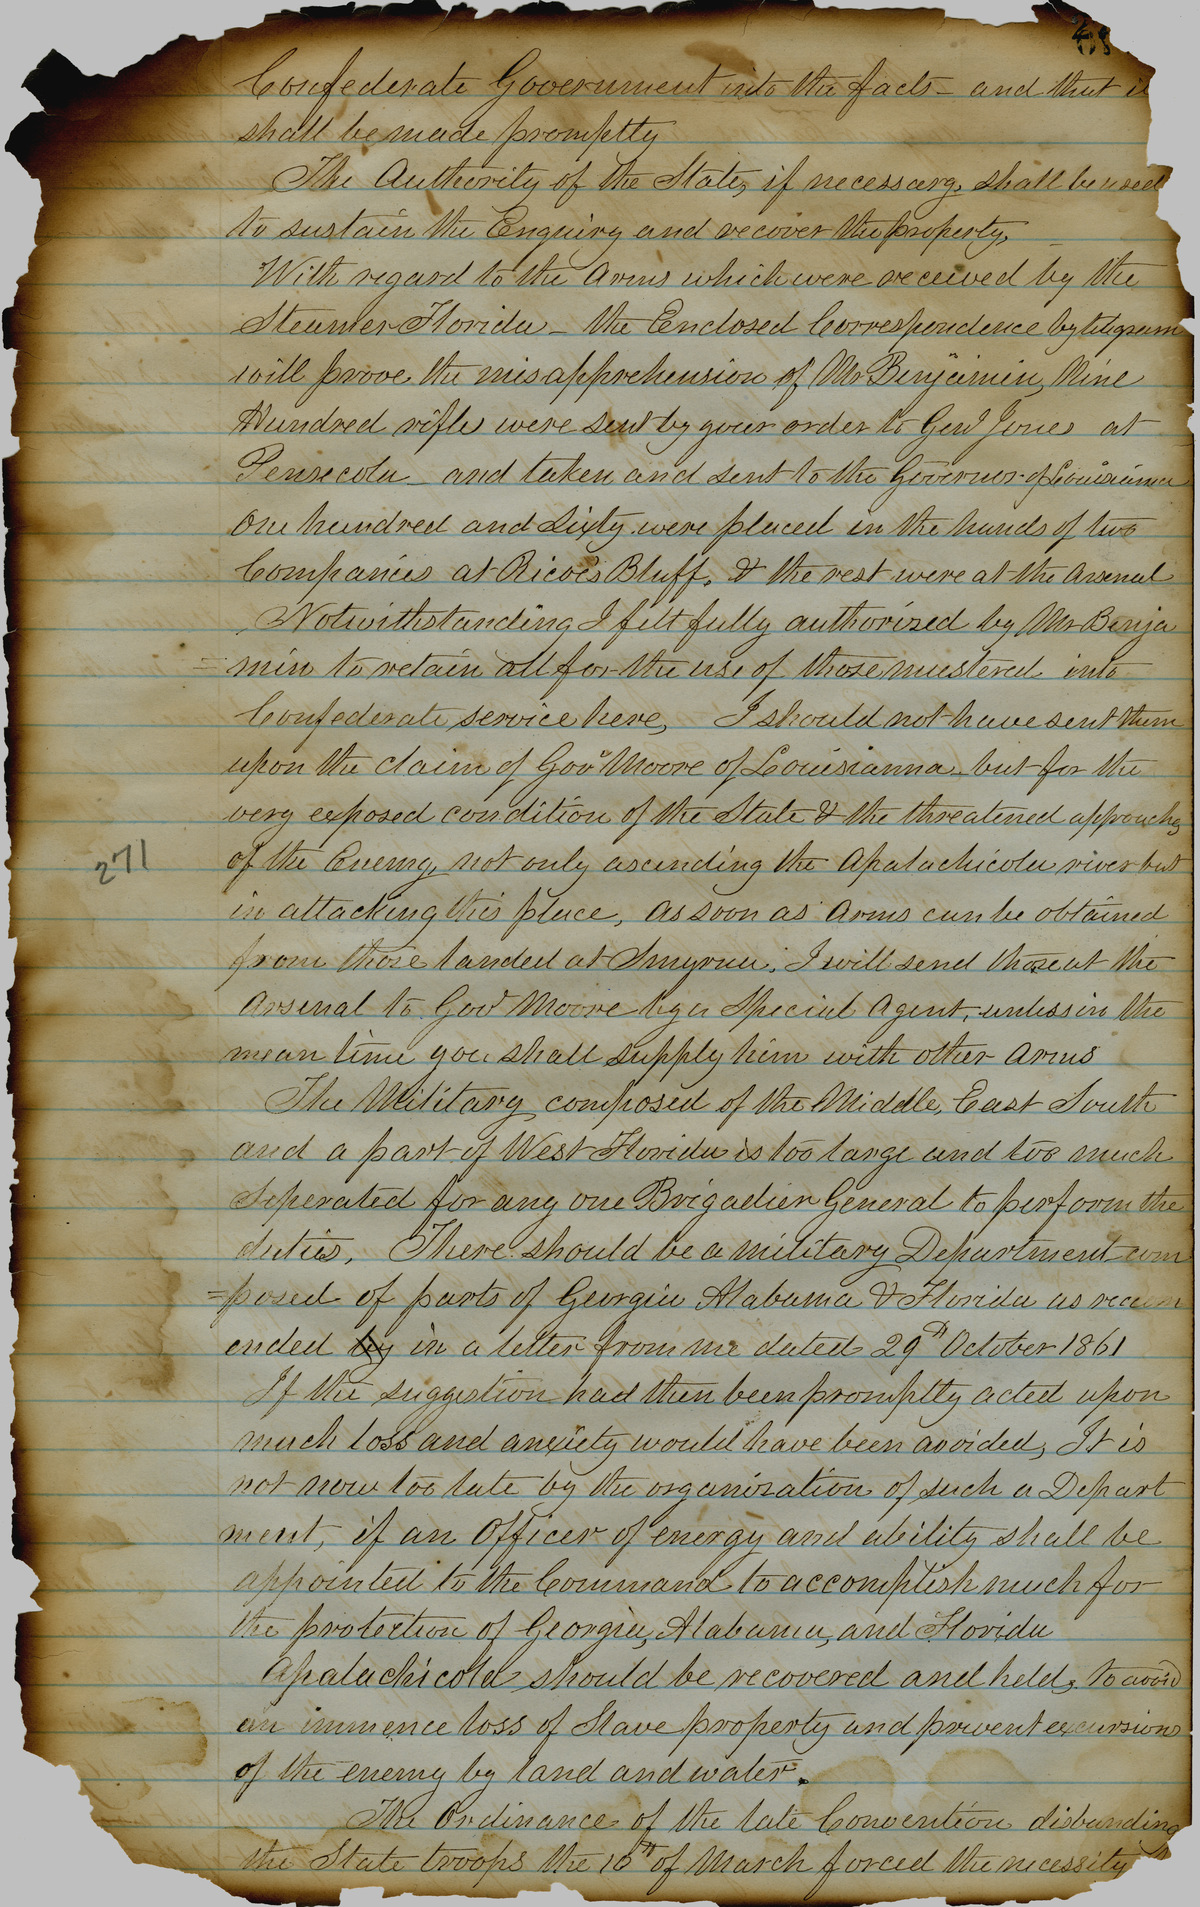 Confederate Government into the facts - and that it
shall be made promptly
The Authority of the State, if necessary, shall be used
to sustain the Enquiry and recover the property.
With regard to the Arms which were received by the
Steamer Florida - the Enclosed Correspondence by telegram
will prove the misapprehension of Mr Benjamin, Nine
Hundred rifles were sent by your order to Genl Jones at
Pensecola - and taken and sent to the Governor of Louisiana
One hundred and Sixty were placed in the hands of two
Companies at Ricoe's Bluff, & the rest were at the Arsenal
Notwithstanding I felt fully authorized by Mr Benja
= min to retain all for the use of those mustered into
Confederate service here, I should not have sent them
upon the claim of Govr Moore of Louisianna - but for the
very exposed condition of the State & the threatened approaches
of the Enemy, not only ascending the Apalachicola river but
in attacking this place, As soon as Arms can be obtained
from those landed at Smyrna, I will send those at the
Arsenal to Govr Moore by a Special Agent, unless in the
mean time you shall supply him with other Arms
The Military composed of the Middle, East South
and a part of West Florida is too large and too much
Seperated for any one Brigadier General to perform the
duties, There should be a military Department com
=posed of parts of Georgia Alabama & Florida as recom
ended by in a letter from me dated 29th October 1861
If the suggestion had then been promptly acted upon
much loss and anxiety would have been avoided, It is
not now too late by the organization of such a Depart
ment, if an Officer of energy and ability shall be
appointed to the Command to accomplish much for
the protection of Georgia, Alabama, and Florida
Apalachicola should be recovered and held, to avoid
an immence loss of Slave property and prevent excursions
of the enemy by land and water.
The Ordinance of the late Convention disbanding
the State troops the 10th of March forced the necessity
271